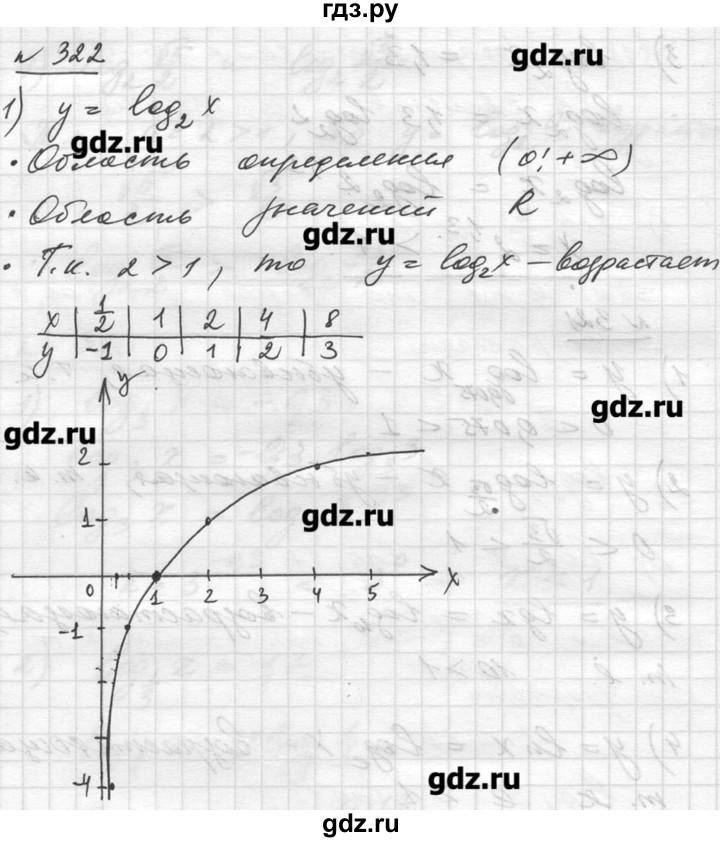 гдз.ру
gdz.ru
№ 322
1) y = log₂ x
gdz.ru
• Область определения (0; +∞)
• Область значений R
gdz.ru
• Т.к. 2 > 1, то y = log₂x – возрастает
x | 1/2 | 1 | 2 | 4 | 8
y | -1 | 0 | 1 | 2 | 3
y
gdz.ru
gdz.ru
2
1
gdz.ru
0 1 2 3 4 5 x
-1
-4
gdz.ru
gdz.ru